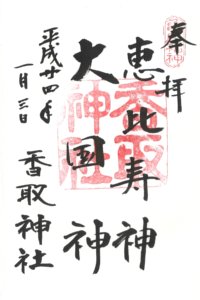 奉拝
恵比寿神
大国神
平成廿四年
一月三日
香取神社
香取神社